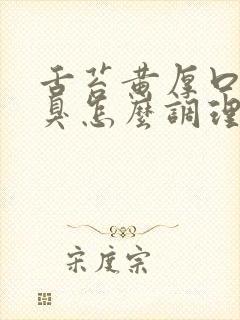 舌苔黄厚口
臭怎麼調理
宋度宗